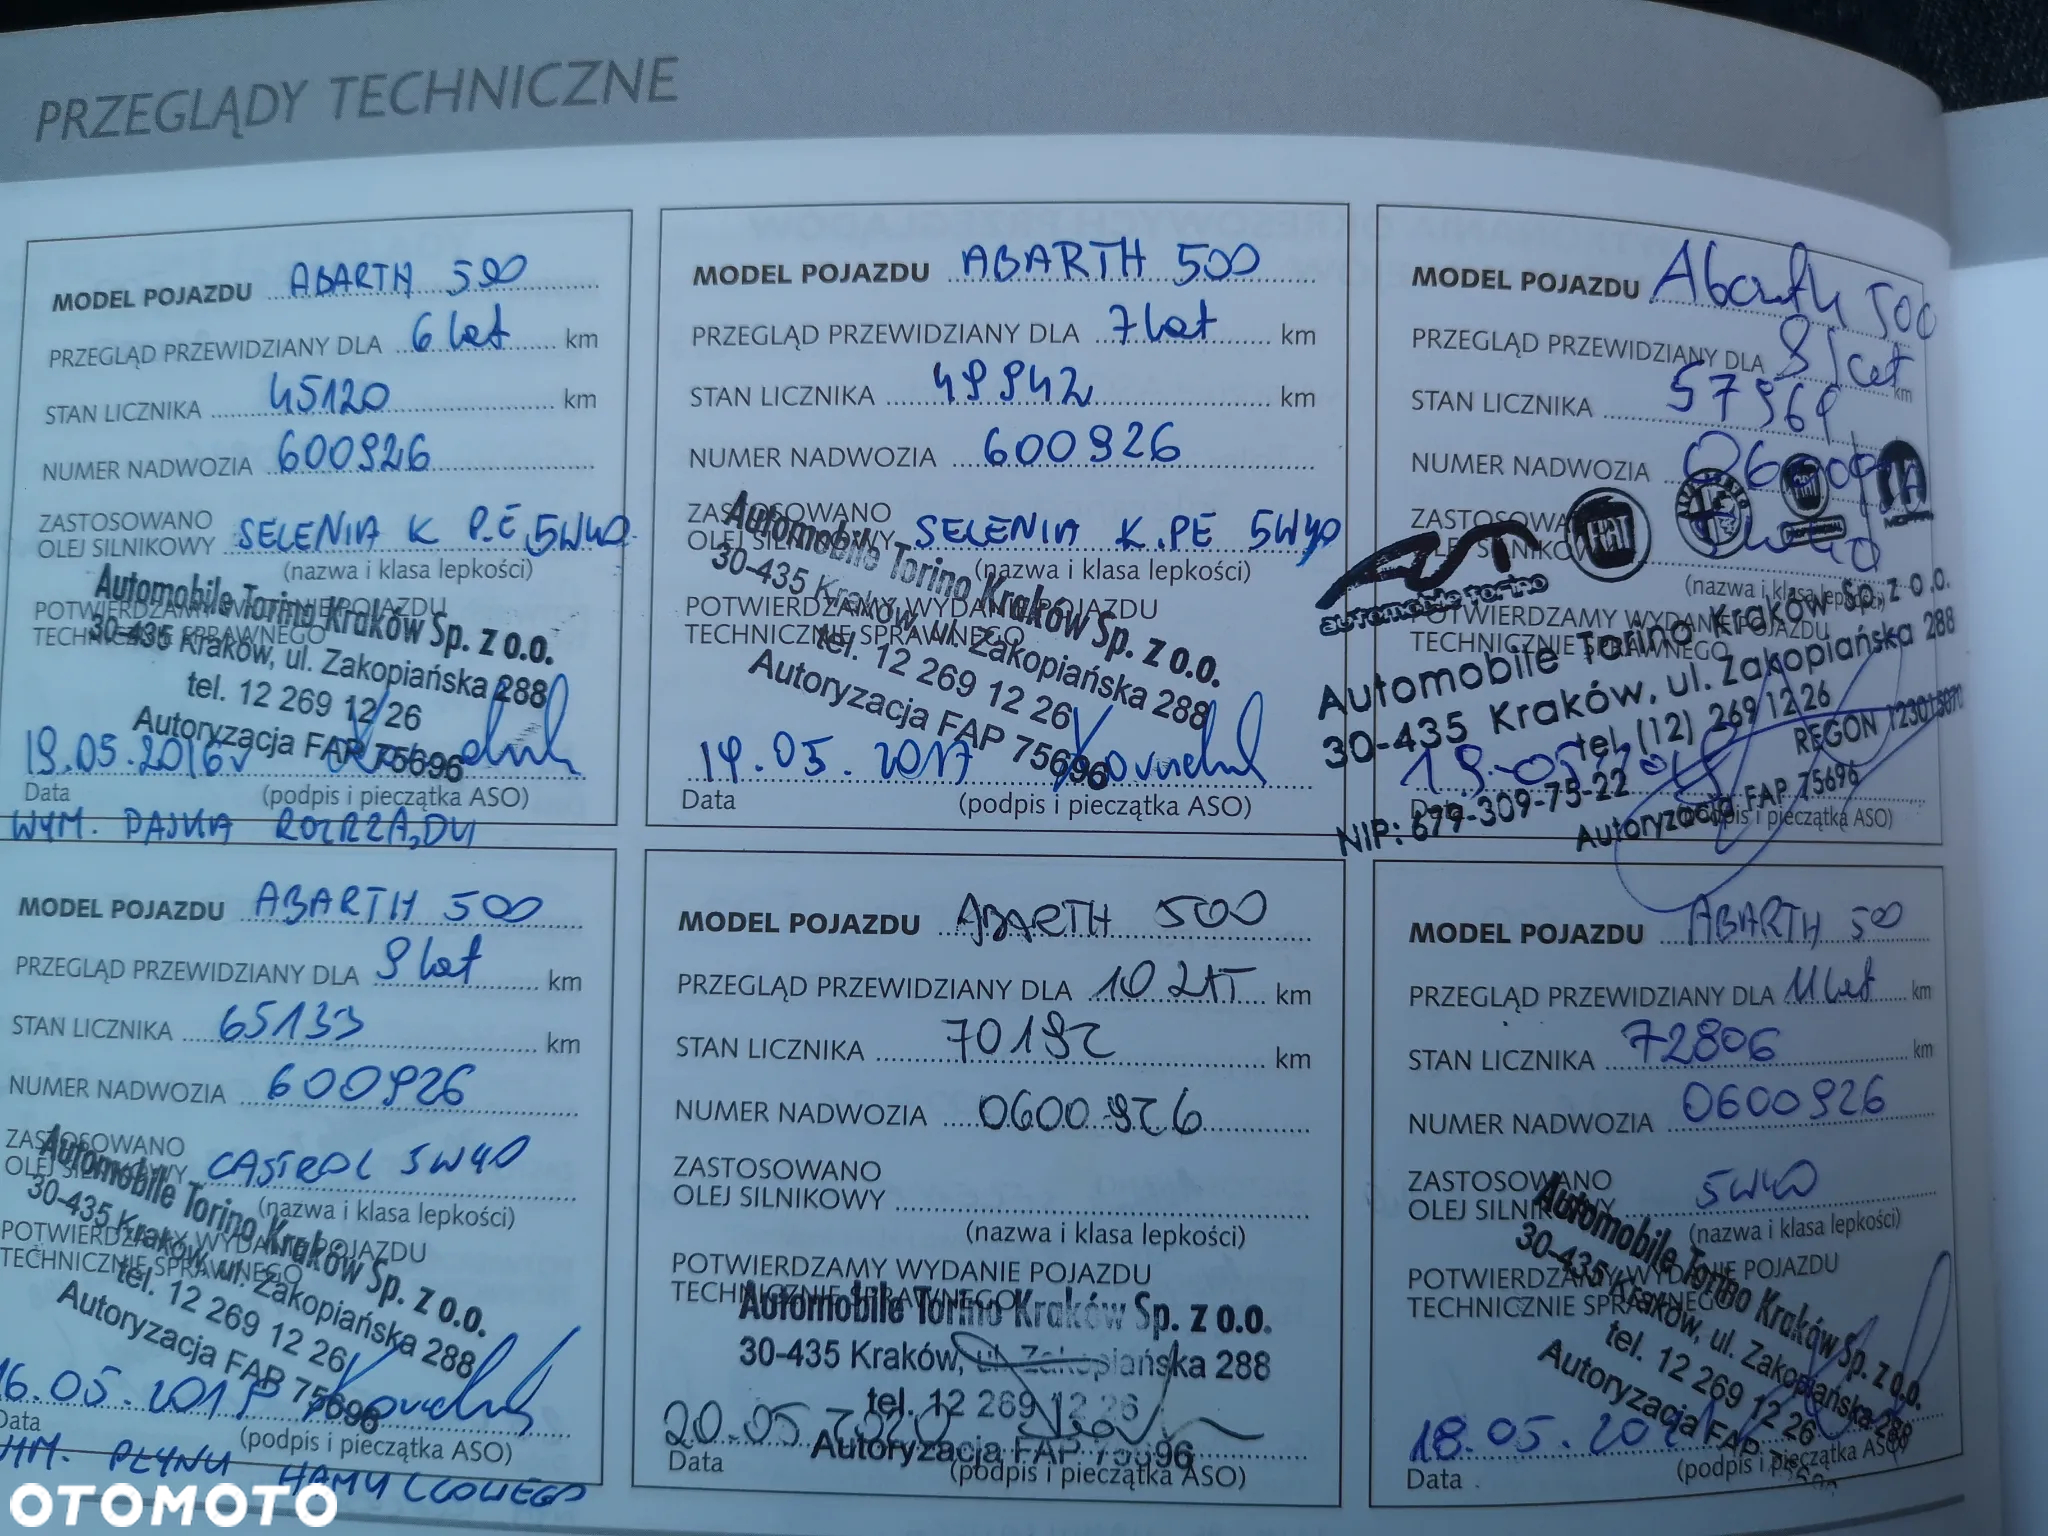 PRZEGLĄDY TECHNICZNE
MODEL POJAZDU ABARTH 500
PRZEGLĄD PRZEWIDZIANY DLA 6 lat km
STAN LICZNIKA 45120 km
NUMER NADWOZIA 600926
ZASTOSOWANO
OLEJ SILNIKOWY SELENIA K P.E 5W40
(nazwa i klasa lepkości)
POTWIERDZAMY WYDANIE POJAZDU
TECHNICZNIE SPRAWNEGO
Automobile Torino Kraków Sp. z o.o.
30-435 Kraków, ul. Zakopiańska 288
tel. 12 269 12 26
Autoryzacja FAP 75696
19.05.2016r
Data (podpis i pieczątka ASO)
WYM. PASKA ROZRZĄDU
MODEL POJAZDU ABARTH 500
PRZEGLĄD PRZEWIDZIANY DLA 7 lat km
STAN LICZNIKA 49942 km
NUMER NADWOZIA 600926
ZASTOSOWANO
OLEJ SILNIKOWY SELENIA K.PE 5W40
(nazwa i klasa lepkości)
POTWIERDZAMY WYDANIE POJAZDU
TECHNICZNIE SPRAWNEGO
Automobile Torino Kraków Sp. z o.o.
30-435 Kraków, ul. Zakopiańska 288
tel. 12 269 12 26
Autoryzacja FAP 75696
19.05.2017
Data (podpis i pieczątka ASO)
MODEL POJAZDU Abarth 500
PRZEGLĄD PRZEWIDZIANY DLA 8 lat km
STAN LICZNIKA 57969
NUMER NADWOZIA
ZASTOSOWANO
OLEJ SILNIKOWY 5W40
FIAT
MOPAR
automobile torino
(nazwa i klasa lepkości)
POTWIERDZAMY WYDANIE POJAZDU
TECHNICZNIE SPRAWNEGO
Automobile Torino Kraków Sp. z o.o.
30-435 Kraków, ul. Zakopiańska 288
tel. (12) 269 12 26
REGON 123015070
NIP: 679-309-75-22
Autoryzacja FAP 75696
Data (podpis i pieczątka ASO)
MODEL POJAZDU ABARTH 500
PRZEGLĄD PRZEWIDZIANY DLA 9 lat km
STAN LICZNIKA 65133 km
NUMER NADWOZIA 600926
ZASTOSOWANO
OLEJ SILNIKOWY CASTROL 5W40
(nazwa i klasa lepkości)
POTWIERDZAMY WYDANIE POJAZDU
TECHNICZNIE SPRAWNEGO
Automobile Torino Kraków Sp. z o.o.
30-435 Kraków, ul. Zakopiańska 288
tel. 12 269 12 26
Autoryzacja FAP 75696
16.05.2019
Data (podpis i pieczątka ASO)
WYM. PŁYNU HAMULCOWEGO
MODEL POJAZDU ABARTH 500
PRZEGLĄD PRZEWIDZIANY DLA 10 LAT km
STAN LICZNIKA 70192 km
NUMER NADWOZIA 0600926
ZASTOSOWANO
OLEJ SILNIKOWY
(nazwa i klasa lepkości)
POTWIERDZAMY WYDANIE POJAZDU
TECHNICZNIE SPRAWNEGO
Automobile Torino Kraków Sp. z o.o.
30-435 Kraków, ul. Zakopiańska 288
tel. 12 269 12 26
Autoryzacja FAP 75696
20.05.2020
Data (podpis i pieczątka ASO)
MODEL POJAZDU ABARTH 500
PRZEGLĄD PRZEWIDZIANY DLA 11 lat km
STAN LICZNIKA 72806 km
NUMER NADWOZIA 0600926
ZASTOSOWANO
OLEJ SILNIKOWY 5W40
(nazwa i klasa lepkości)
POTWIERDZAMY WYDANIE POJAZDU
TECHNICZNIE SPRAWNEGO
Automobile Torino Kraków Sp. z o.o.
30-435 Kraków, ul. Zakopiańska 288
tel. 12 269 12 26
Autoryzacja FAP 75696
18.05.2021
Data (podpis i pieczątka ASO)
OTOMOTO